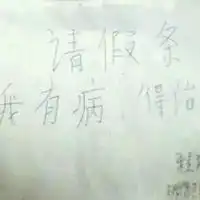 请假条
我有病 得治